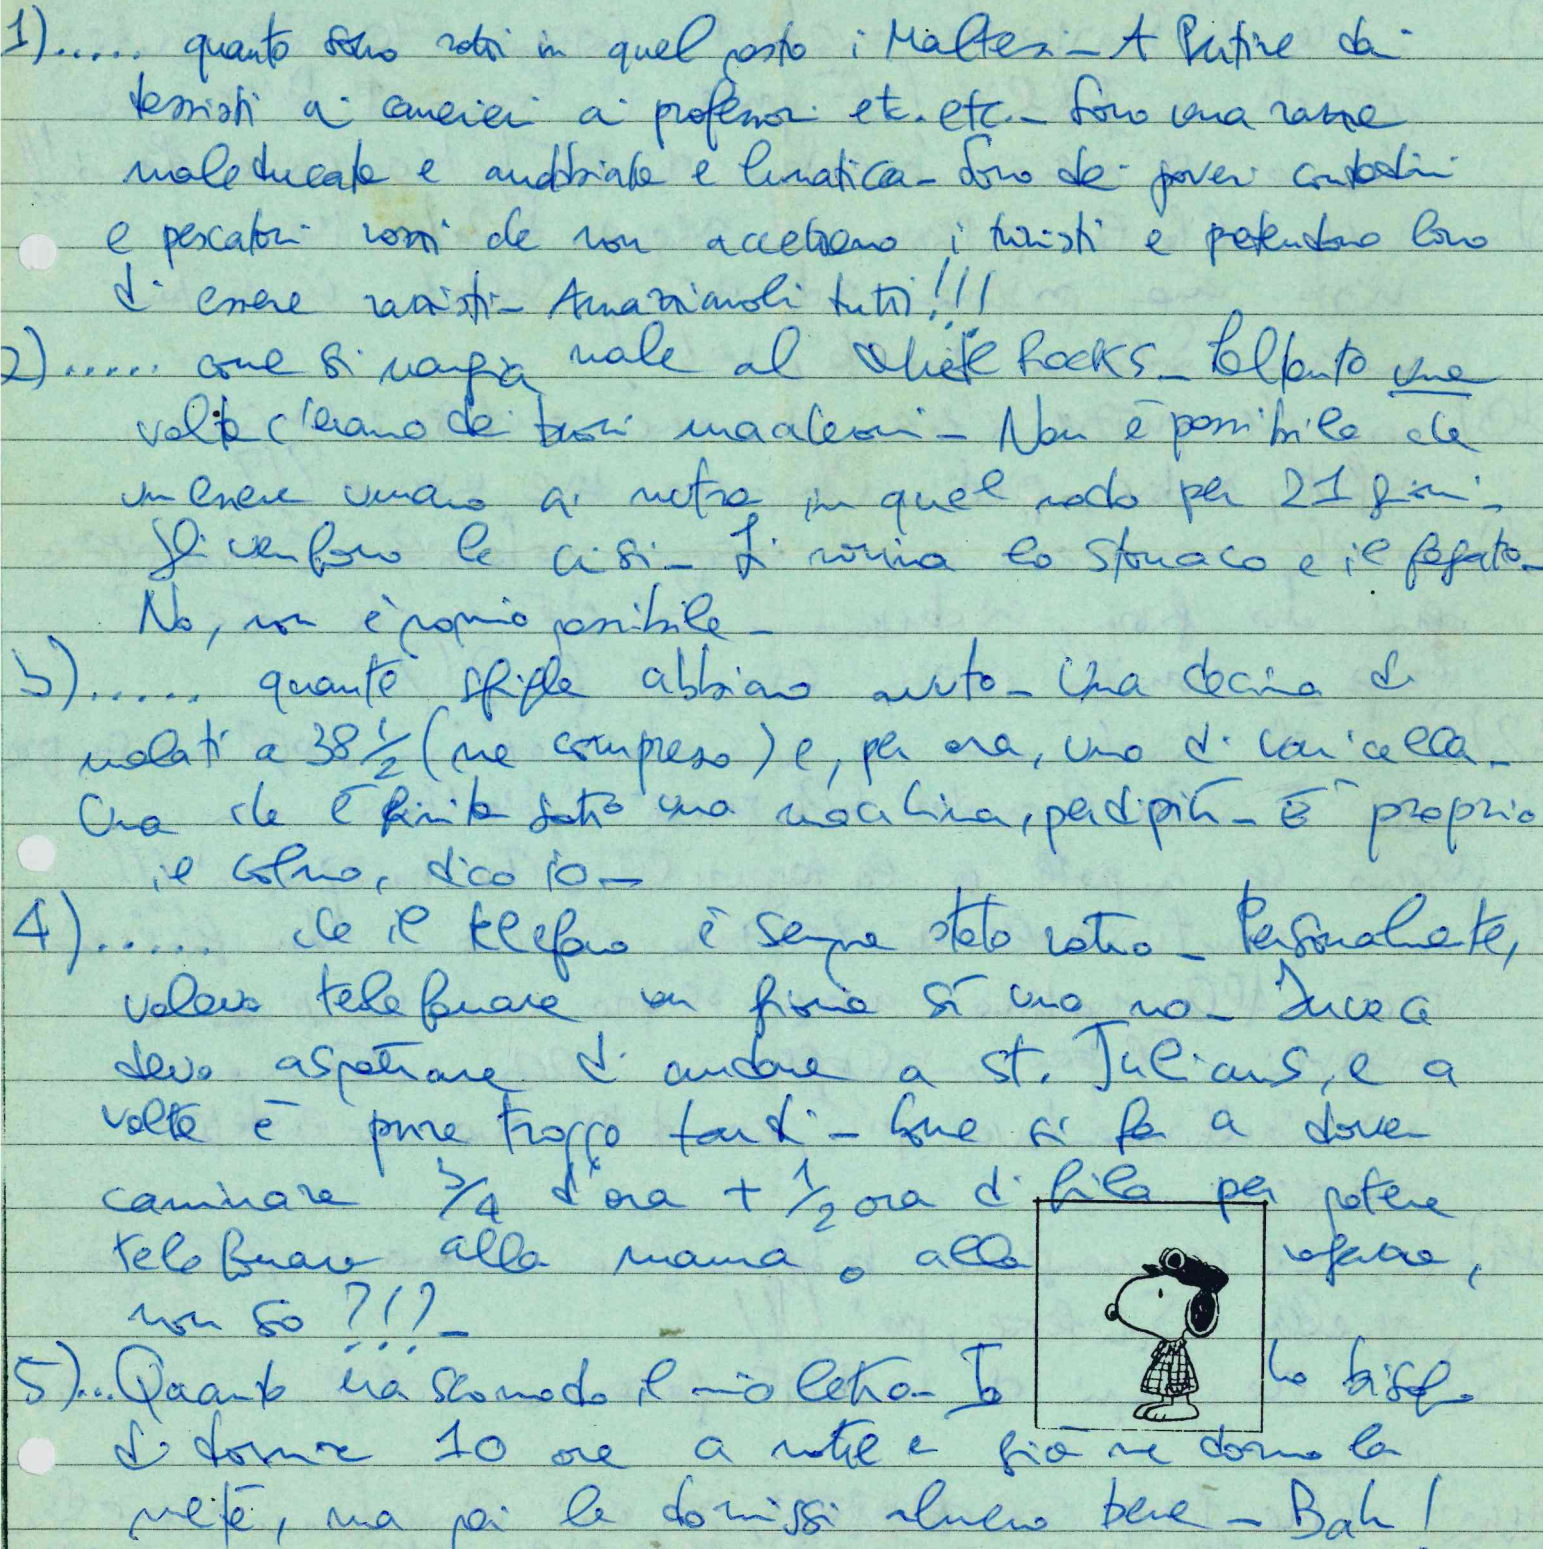 1)..... quanto sono rotti in quel posto i Maltesi - A Partire dai
tassisti ai camerieri ai professori etc. etc. - Sono una razza
maleducata e arrabbiata e lunatica - Sono dei poveri contadini
e pescatori rozzi che non accettano i turisti e pretendono loro
di essere razzisti - Amazziamoli tutti!!!
2)..... come si mangia male al White Rocks - Soltanto una
volta c'erano dei buoni maccheroni - Non è possibile che
un essere umano si nutra in quel modo per 21 giorni -
Gli vengono le crisi - Si rovina lo stomaco e il fegato -
No, non è proprio possibile -
3)...... quante sfighe abbiamo avuto - Una decina di
malati a 38 1/2 (me compreso) e, per ora, uno di varicella -
Una che è finita sotto una macchina, perdipiù - È proprio
il colmo, dico io -
4)...... che il telefono è sempre stato rotto - Personalmente,
volevo telefonare un giorno sì uno no - Invece
devo aspettare di andare a St. Julians, e a
volte è pure troppo tardi - Come si fa a dover
camminare 3/4 d'ora + 1/2 ora di fila per potere
telefonare alla mamma o alla ragazza,
non so ?!? -
5)... Quanto era scomodo il mio letto - Io ho bisogno
di dormire 10 ore a notte e già ne dormo la
metà, ma poi le dormissi almeno bene - Bah!